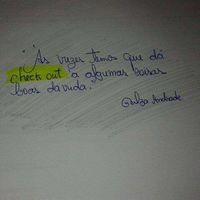 "As vezes temos que dá
check out a algumas coisas
boas da vida."
Andrade